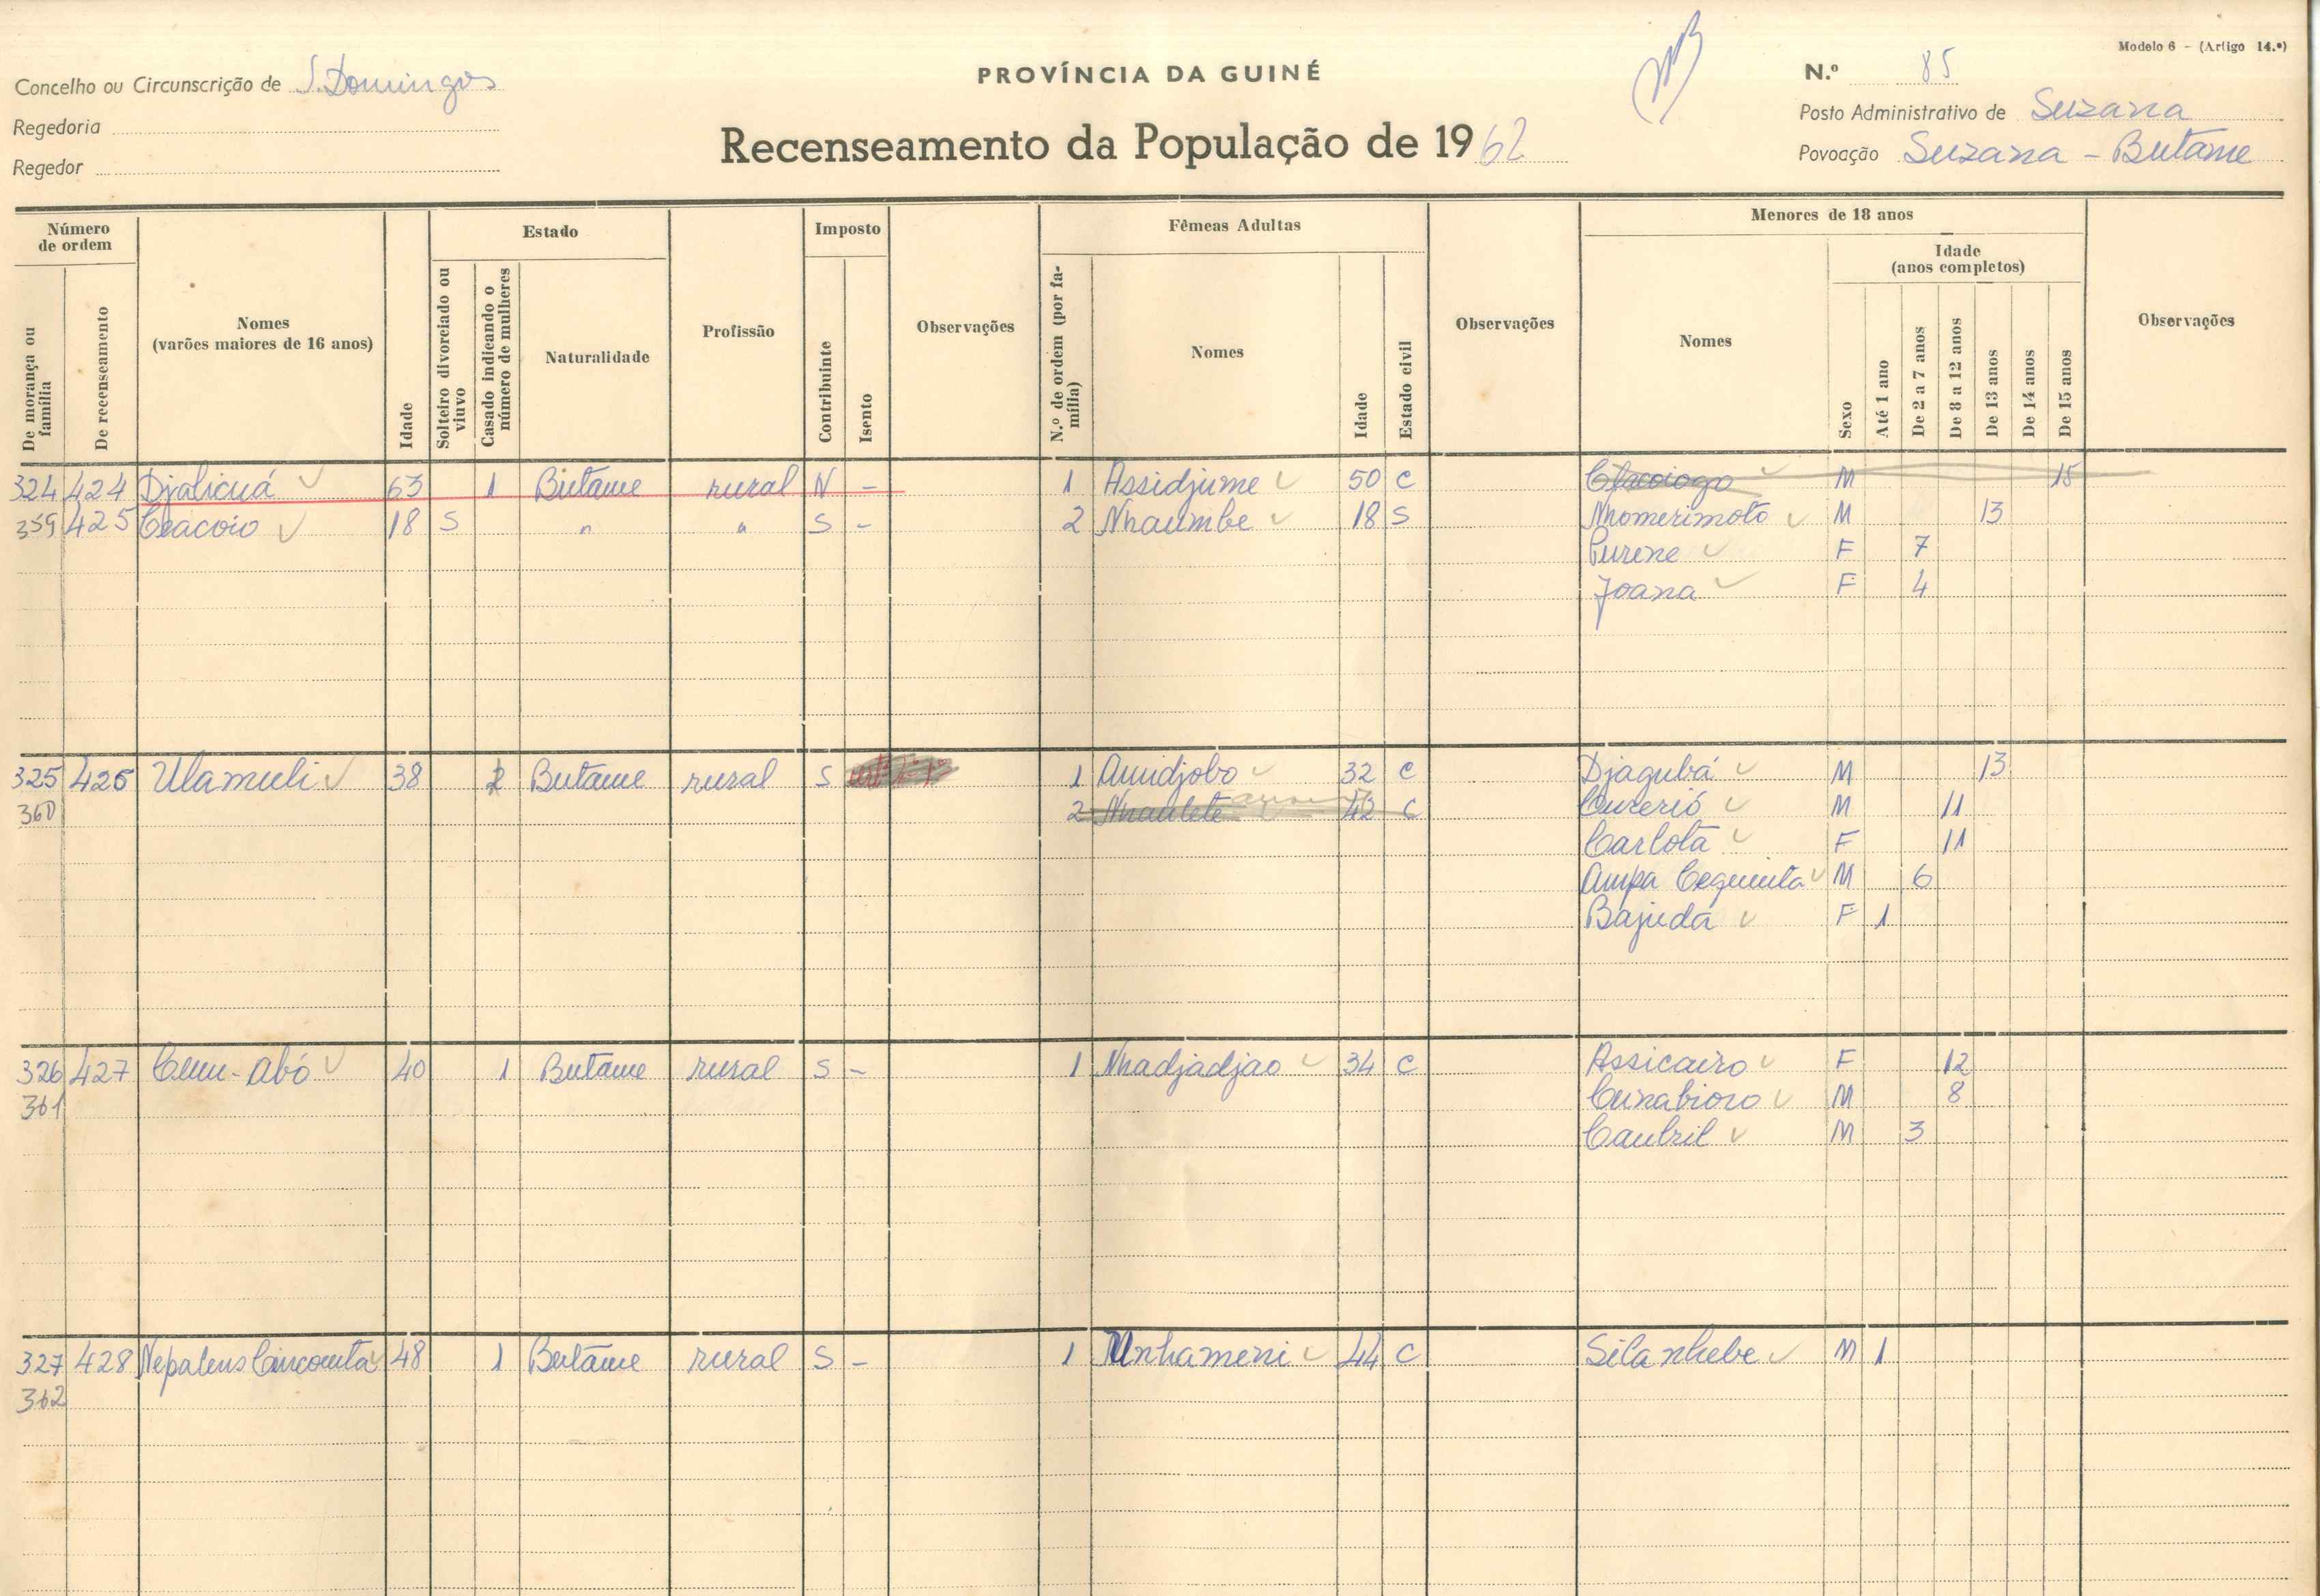 Modelo 6 - (Artigo 14.º)
PROVÍNCIA DA GUINÉ
Concelho ou Circunscrição de S. Domingos
Regedoria
Regedor
Recenseamento da População de 1962
N.º 85
Posto Administrativo de Suzana
Povoação Suzana - Butame
Número de ordem
De morança ou família
De recenseamento
Nomes (varões maiores de 16 anos)
Idade
Estado
Solteiro divorciado ou viuvo
Casado indicando o número de mulheres
Naturalidade
Profissão
Imposto
Contribuinte
Isento
Observações
Fêmeas Adultas
N.º de ordem (por família)
Nomes
Idade
Estado civil
Observações
Menores de 18 anos
Nomes
Sexo
Idade (anos completos)
Até 1 ano
De 2 a 7 anos
De 8 a 12 anos
De 13 anos
De 14 anos
De 15 anos
Observações
324 424 Djalicuá 63 1 Butame rural N - 1 Assidjume 50 C M 15
359 425 Ceacoio 18 S " " S - 2 Nhaumbe 18 S Nhomerimoto M 13
Purene F 7
Joana F 4
325 426 Ulamuli 38 2 Butame rural S 1 Amidjobo 32 C Djagubá M 13
360 2 Nhaulete 42 C Curerió M 11
Carlota F 11
Ampa Ceguinta M 6
Bajuda F 1
326 427 Cum-Abó 40 1 Butame rural S - 1 Nhadjadjao 34 C Assicairo F 12
361 Cunabioro M 8
Caubril M 3
327 428 Nepalens Cincounta 48 1 Butame rural S - 1 Unhameni 44 C Silanhebe M 1
362